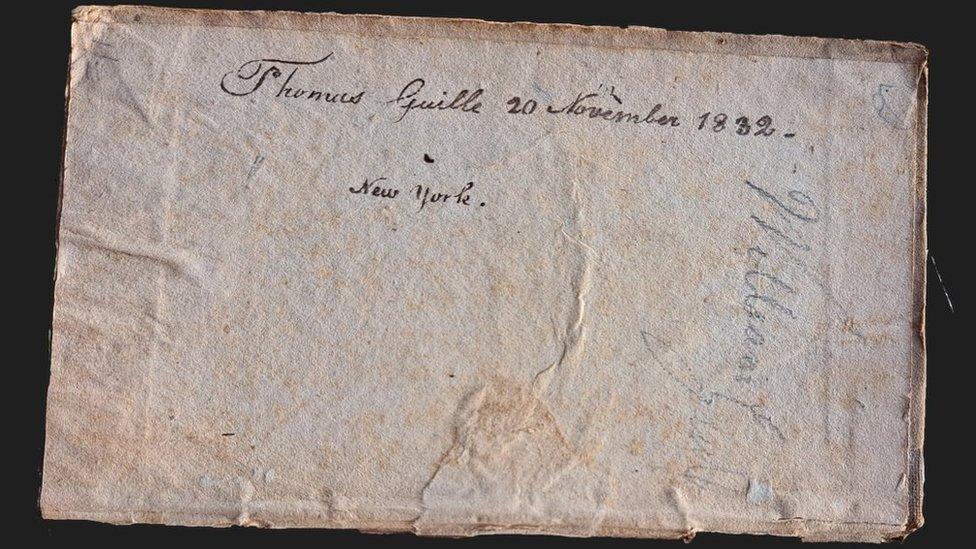 Thomas Guille 20 November 1832-
New York.